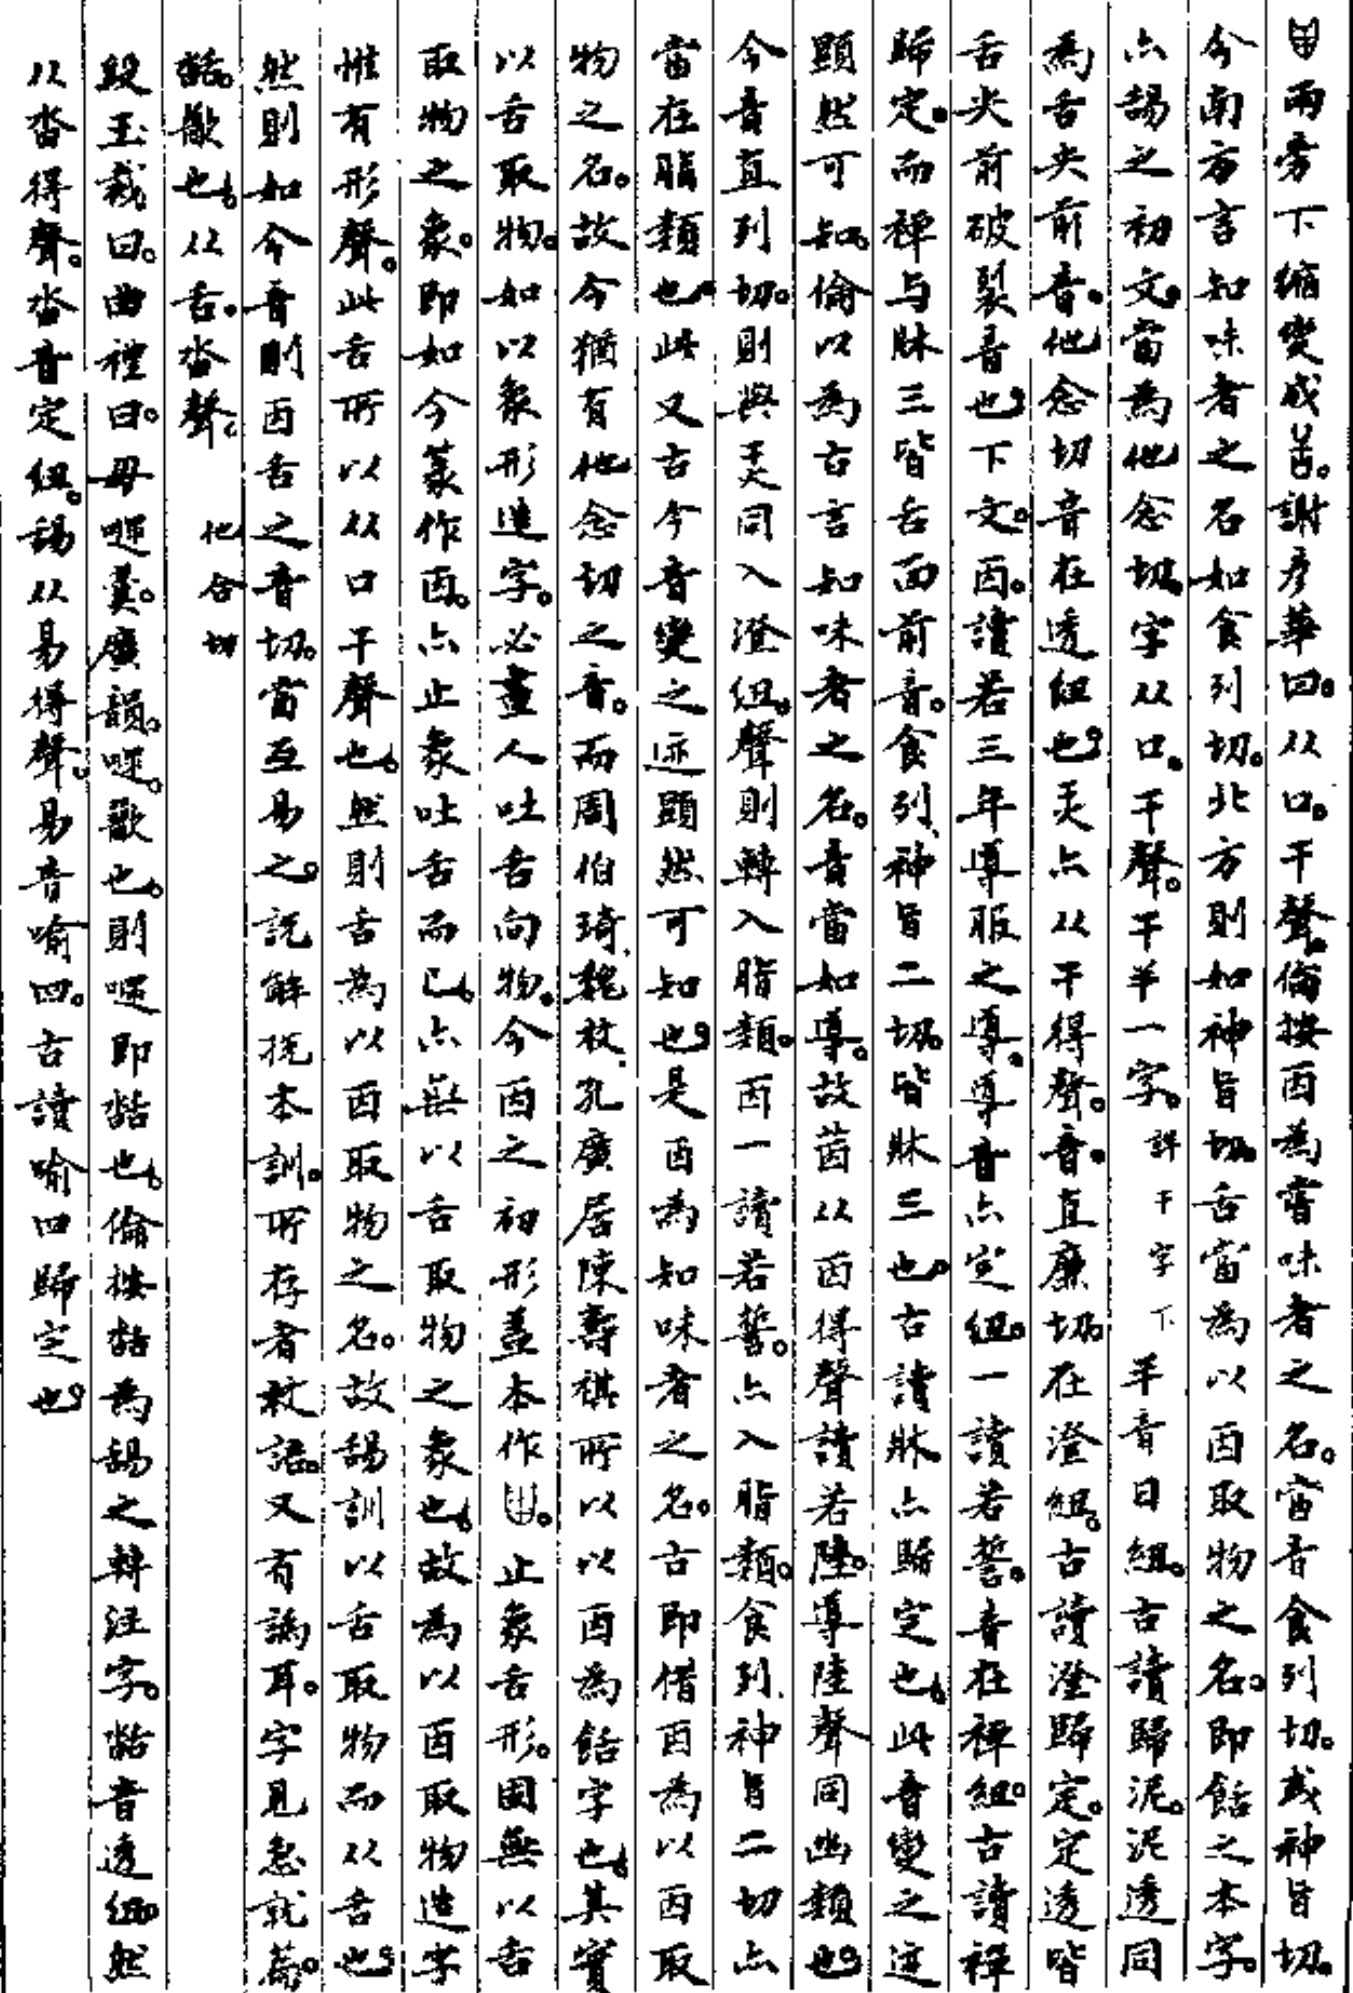 兩旁下縮變成𠯑。謝彥華曰。从口。干聲。倫按㐁為嘗味者之名。當音食列切。或神旨切。
今南方言知味者之名如食列切。北方則如神旨切。舌當為以㐁取物之名。即餂之本字。
亦䑛之初文。當為他念切。字从口。干聲。干羊一字。詳干字下羊音日紐。古讀歸泥。泥透同
為舌尖前音。他念切音在透紐也。㒱亦从干得聲。音直廉切。在澄紐。古讀澄歸定。定透皆
舌尖前破裂音也。下文。㐁。讀若三年導服之導。導音亦定紐。一讀若誓。音在禪紐。古讀禪
歸定。而禪与牀三皆舌面前音。食列、神旨二切。皆牀三也。古讀牀亦歸定也。此音變之迹
顯然可知。倫以為古言知味者之名。音當如導。故茵从㐁得聲讀若陸。導陸聲同幽類也。
今音直列切。則與㒱同入澄紐。聲則轉入脂類。㐁一讀若誓。亦入脂類。食列、神旨二切亦
當在脂類也。此又古今音變之迹顯然可知也。是㐁為知味者之名。古即借㐁為以㐁取
物之名。故今猶有他念切之音。而周伯琦、魏校、孔廣居陳壽祺所以以㐁為餂字也。其實
以舌取物。如以象形造字。必畫人吐舌向物。今㐁之初形蓋本作。止象舌形。固無以舌
取物之象。即如今篆作㐁。亦止象吐舌而已。亦無以舌取物之象也。故為以㐁取物造字
惟有形聲。此舌所以从口干聲也。然則舌為以㐁取物之名。故䑛訓以舌取物而从舌也。
然則如今音則㐁舌之音切。當互易之。說解捝本訓。所存者校語。又有譌耳。字見急就篇。
䑜。歠也。从舌。沓聲。他合切
段玉裁曰。曲禮曰。毋嚃羹。廣韻。嚃。歠也。則嚃即䑜也。倫按䑜為䑛之轉注字。䑜音透紐。然
从沓得聲。沓音定紐。䑛从易得聲。易音喻四。古讀喻四歸定也。